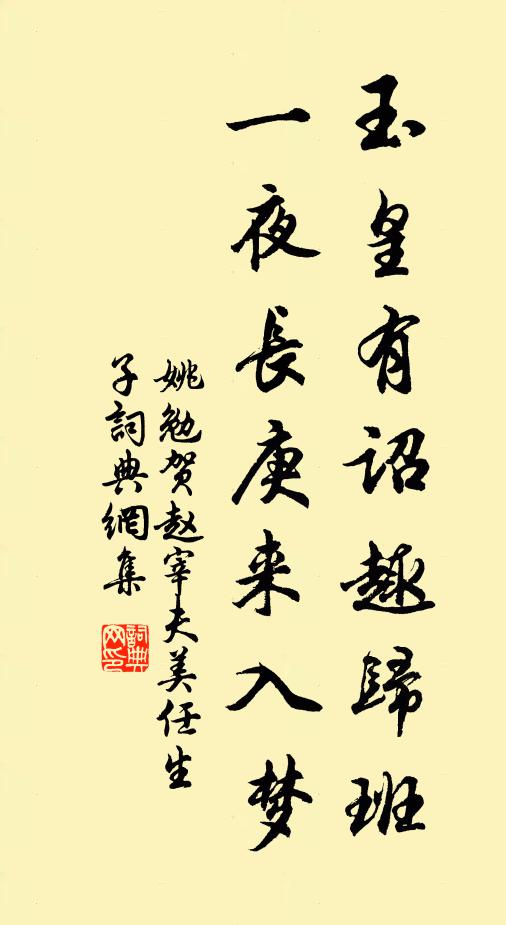 玉皇有詔趣歸班
一夜長庚来入梦
姚勉贺赵宰夫美任生
子詞典網集
詞典
网印